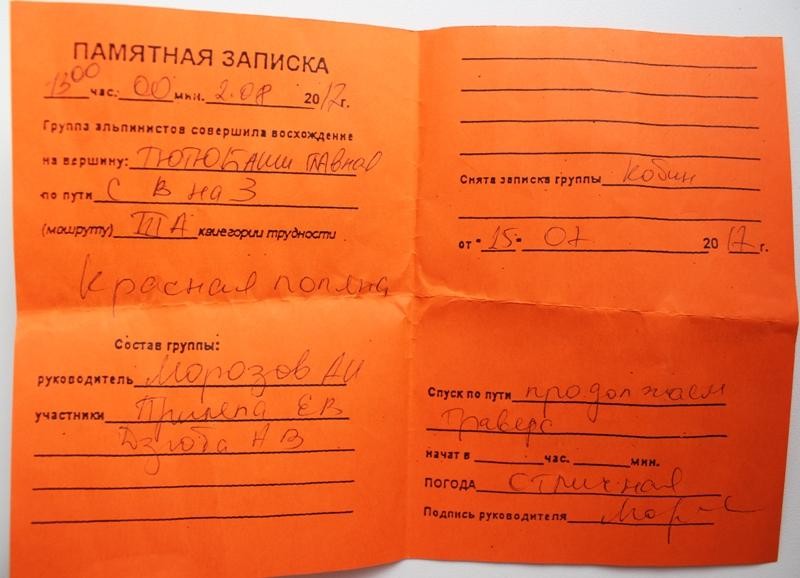 ПАМЯТНАЯ ЗАПИСКА
13 00 час. 00 мин. 2.08 2017г.
Группа альпинистов совершила восхождение
на вершину: ТЮТЮБАШИ ГЛАВНАЯ
по пути С В на З
(мошруту) III А квиегории трудности
Красная поляна
Состав группы:
руководитель Морозов АИ
участники Прилепа ЕВ
Дзюба АВ
Снята записка группы Кобин
от "15" 07 2017 г.
Спуск по пути продолжаем
Траверс
начат в час. мин.
ПОГОДА отличная
Подпись руководителя